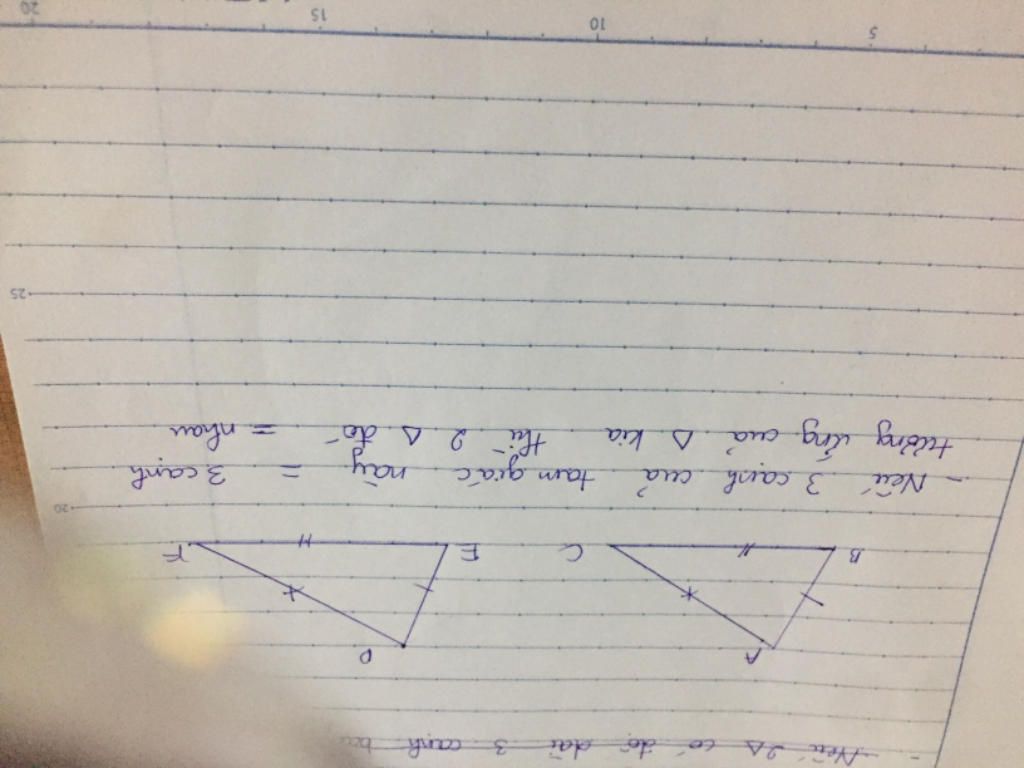 - Nếu 2Δ có độ dài 3 cạnh
A D
B C E F
20
- Nếu 3 cạnh của tam giác này = 3 cạnh
tương ứng của Δ kia thì 2 Δ đó = nhau
25
5 10 15 20